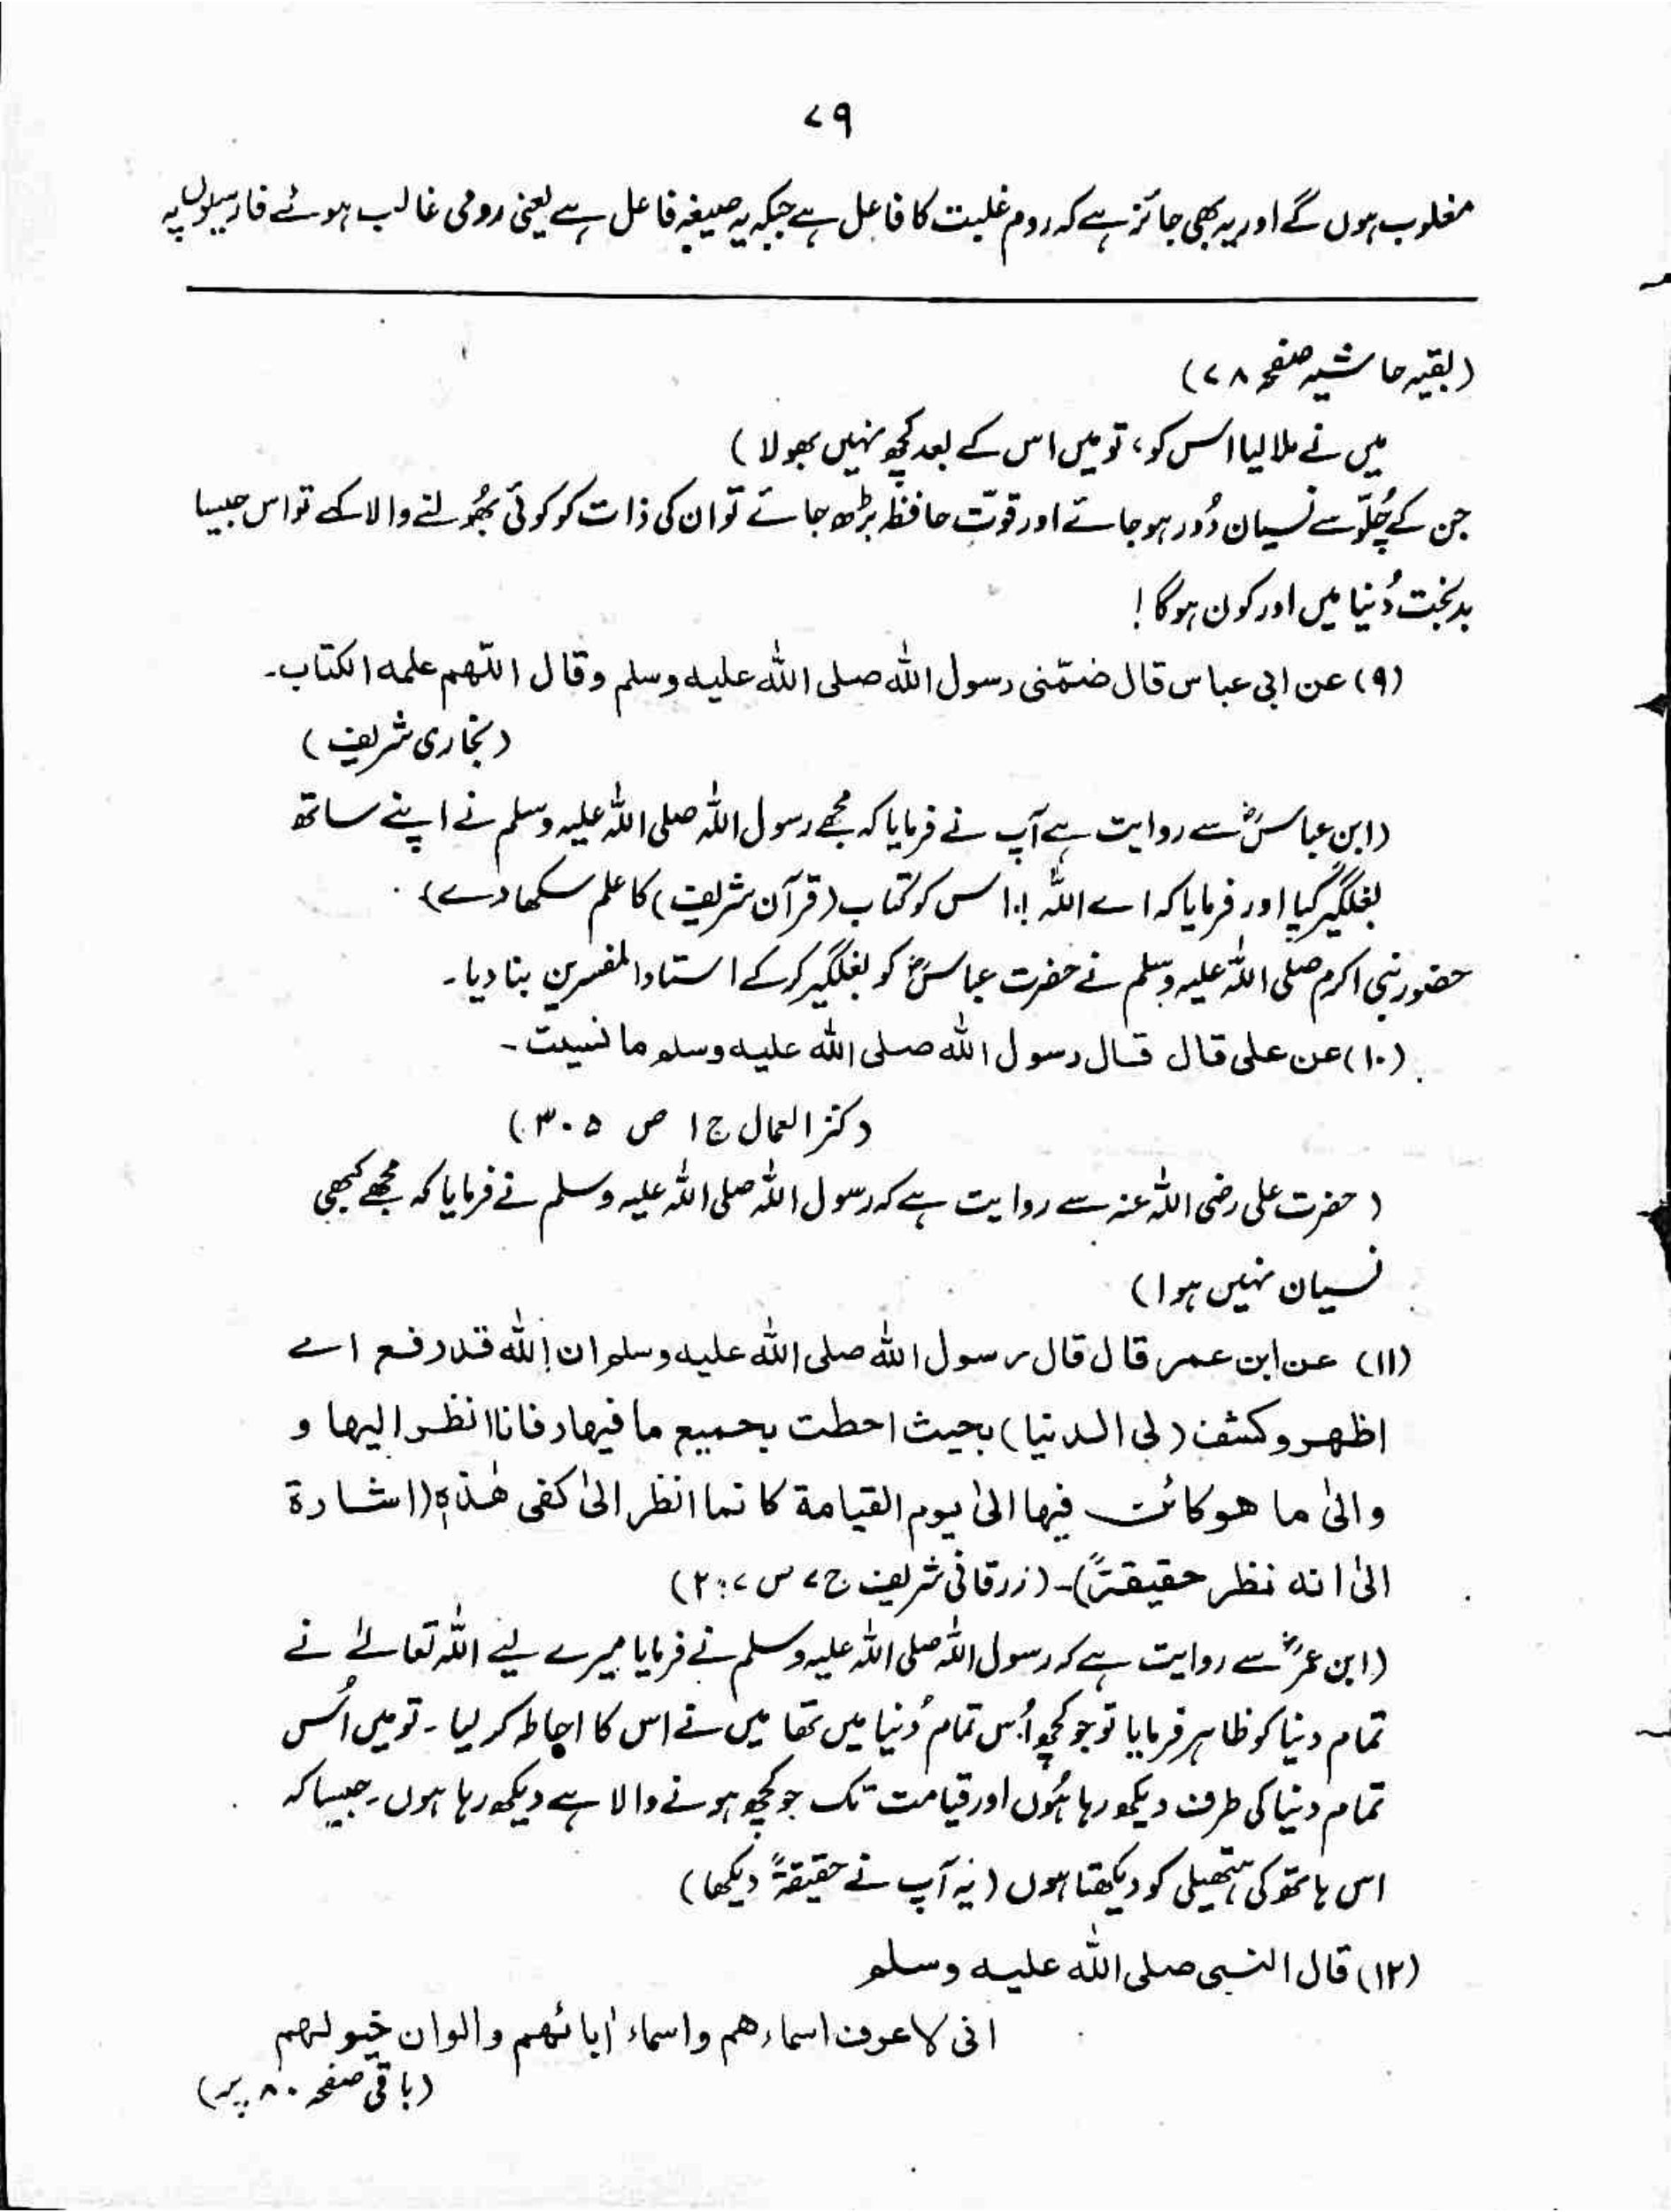 ۷۹
مغلوب ہوں گے اور یہ بھی جائز ہے کہ روم غلبت کا فاعل ہے جبکہ یہ صیغہ فاعل ہے یعنی رومی غالب ہوئے فارسیوں پہ
(بقیہ حاشیہ صفحہ ۷۸)
میں نے ملا لیا اس کو، تو میں اس کے بعد کچھ نہیں بھولا)
جن کے چُلّو سے نسیان دُور ہو جائے اور قوّت حافظہ بڑھ جائے تو ان کی ذات کو کوئی بھُولنے والا کہے تو اس جیسا
بدبخت دُنیا میں اور کون ہوگا!
(۹) عن ابی عباس قال ضمّنی رسول اللہ صلی اللہ علیہ وسلم وقال اللّٰھم علمہ الکتاب۔
(بخاری شریف)
(ابن عباسؓ سے روایت ہے آپ نے فرمایا کہ مجھے رسول اللہ صلی اللہ علیہ وسلم نے اپنے ساتھ
بغلگیر کیا اور فرمایا کہ اے اللہ! اس کو کتاب (قرآن شریف) کا علم سکھا دے)
حضور نبی اکرم صلی اللہ علیہ وسلم نے حضرت عباسؓ کو بغلگیر کر کے استاد المفسرین بنا دیا۔
(۱۰) عن علی قال قال رسول اللہ صلی اللہ علیہ وسلم ما نسیت۔
(کنز العمال ج ۱ ص ۳۰۵)
(حضرت علی رضی اللہ عنہ سے روایت ہے کہ رسول اللہ صلی اللہ علیہ وسلم نے فرمایا کہ مجھے کبھی
نسیان نہیں ہوا)
(۱۱) عن ابن عمر قال قال رسول اللہ صلی اللہ علیہ وسلم ان اللہ قد رفع اے
اظھر وکشف (لی الدنیا) بحیث احطت بجمیع ما فیھا (فانا انظر الیھا و
والیٰ ما ھو کائن فیھا الیٰ یوم القیامۃ کانما انظر الیٰ کفی ھٰذہٖ (اشارۃ
الیٰ انہ نظر حقیقۃً)۔ (زرقانی شریف ج ۷ س
(ابن عمرؓ سے روایت ہے کہ رسول اللہ صلی اللہ علیہ وسلم نے فرمایا میرے لیے اللہ تعالےٰ نے
تمام دنیا کو ظاہر فرمایا تو جو کچھ اُس تمام دُنیا میں تھا میں نے اس کا احاطہ کر لیا۔ تو میں اُس
تمام دنیا کی طرف دیکھ رہا ہُوں اور قیامت تک جو کچھ ہونے والا ہے دیکھ رہا ہوں۔ جیسا کہ
اس ہاتھ کی ہتھیلی کو دیکھتا ہوں (یہ آپ نے حقیقۃً دیکھا)
(۱۲) قال النبی صلی اللہ علیہ وسلم
انی لاعرف اسماءھم واسماء اٰبائھم والوان خیولھم
(باقی صفحہ ۸۰ پر)